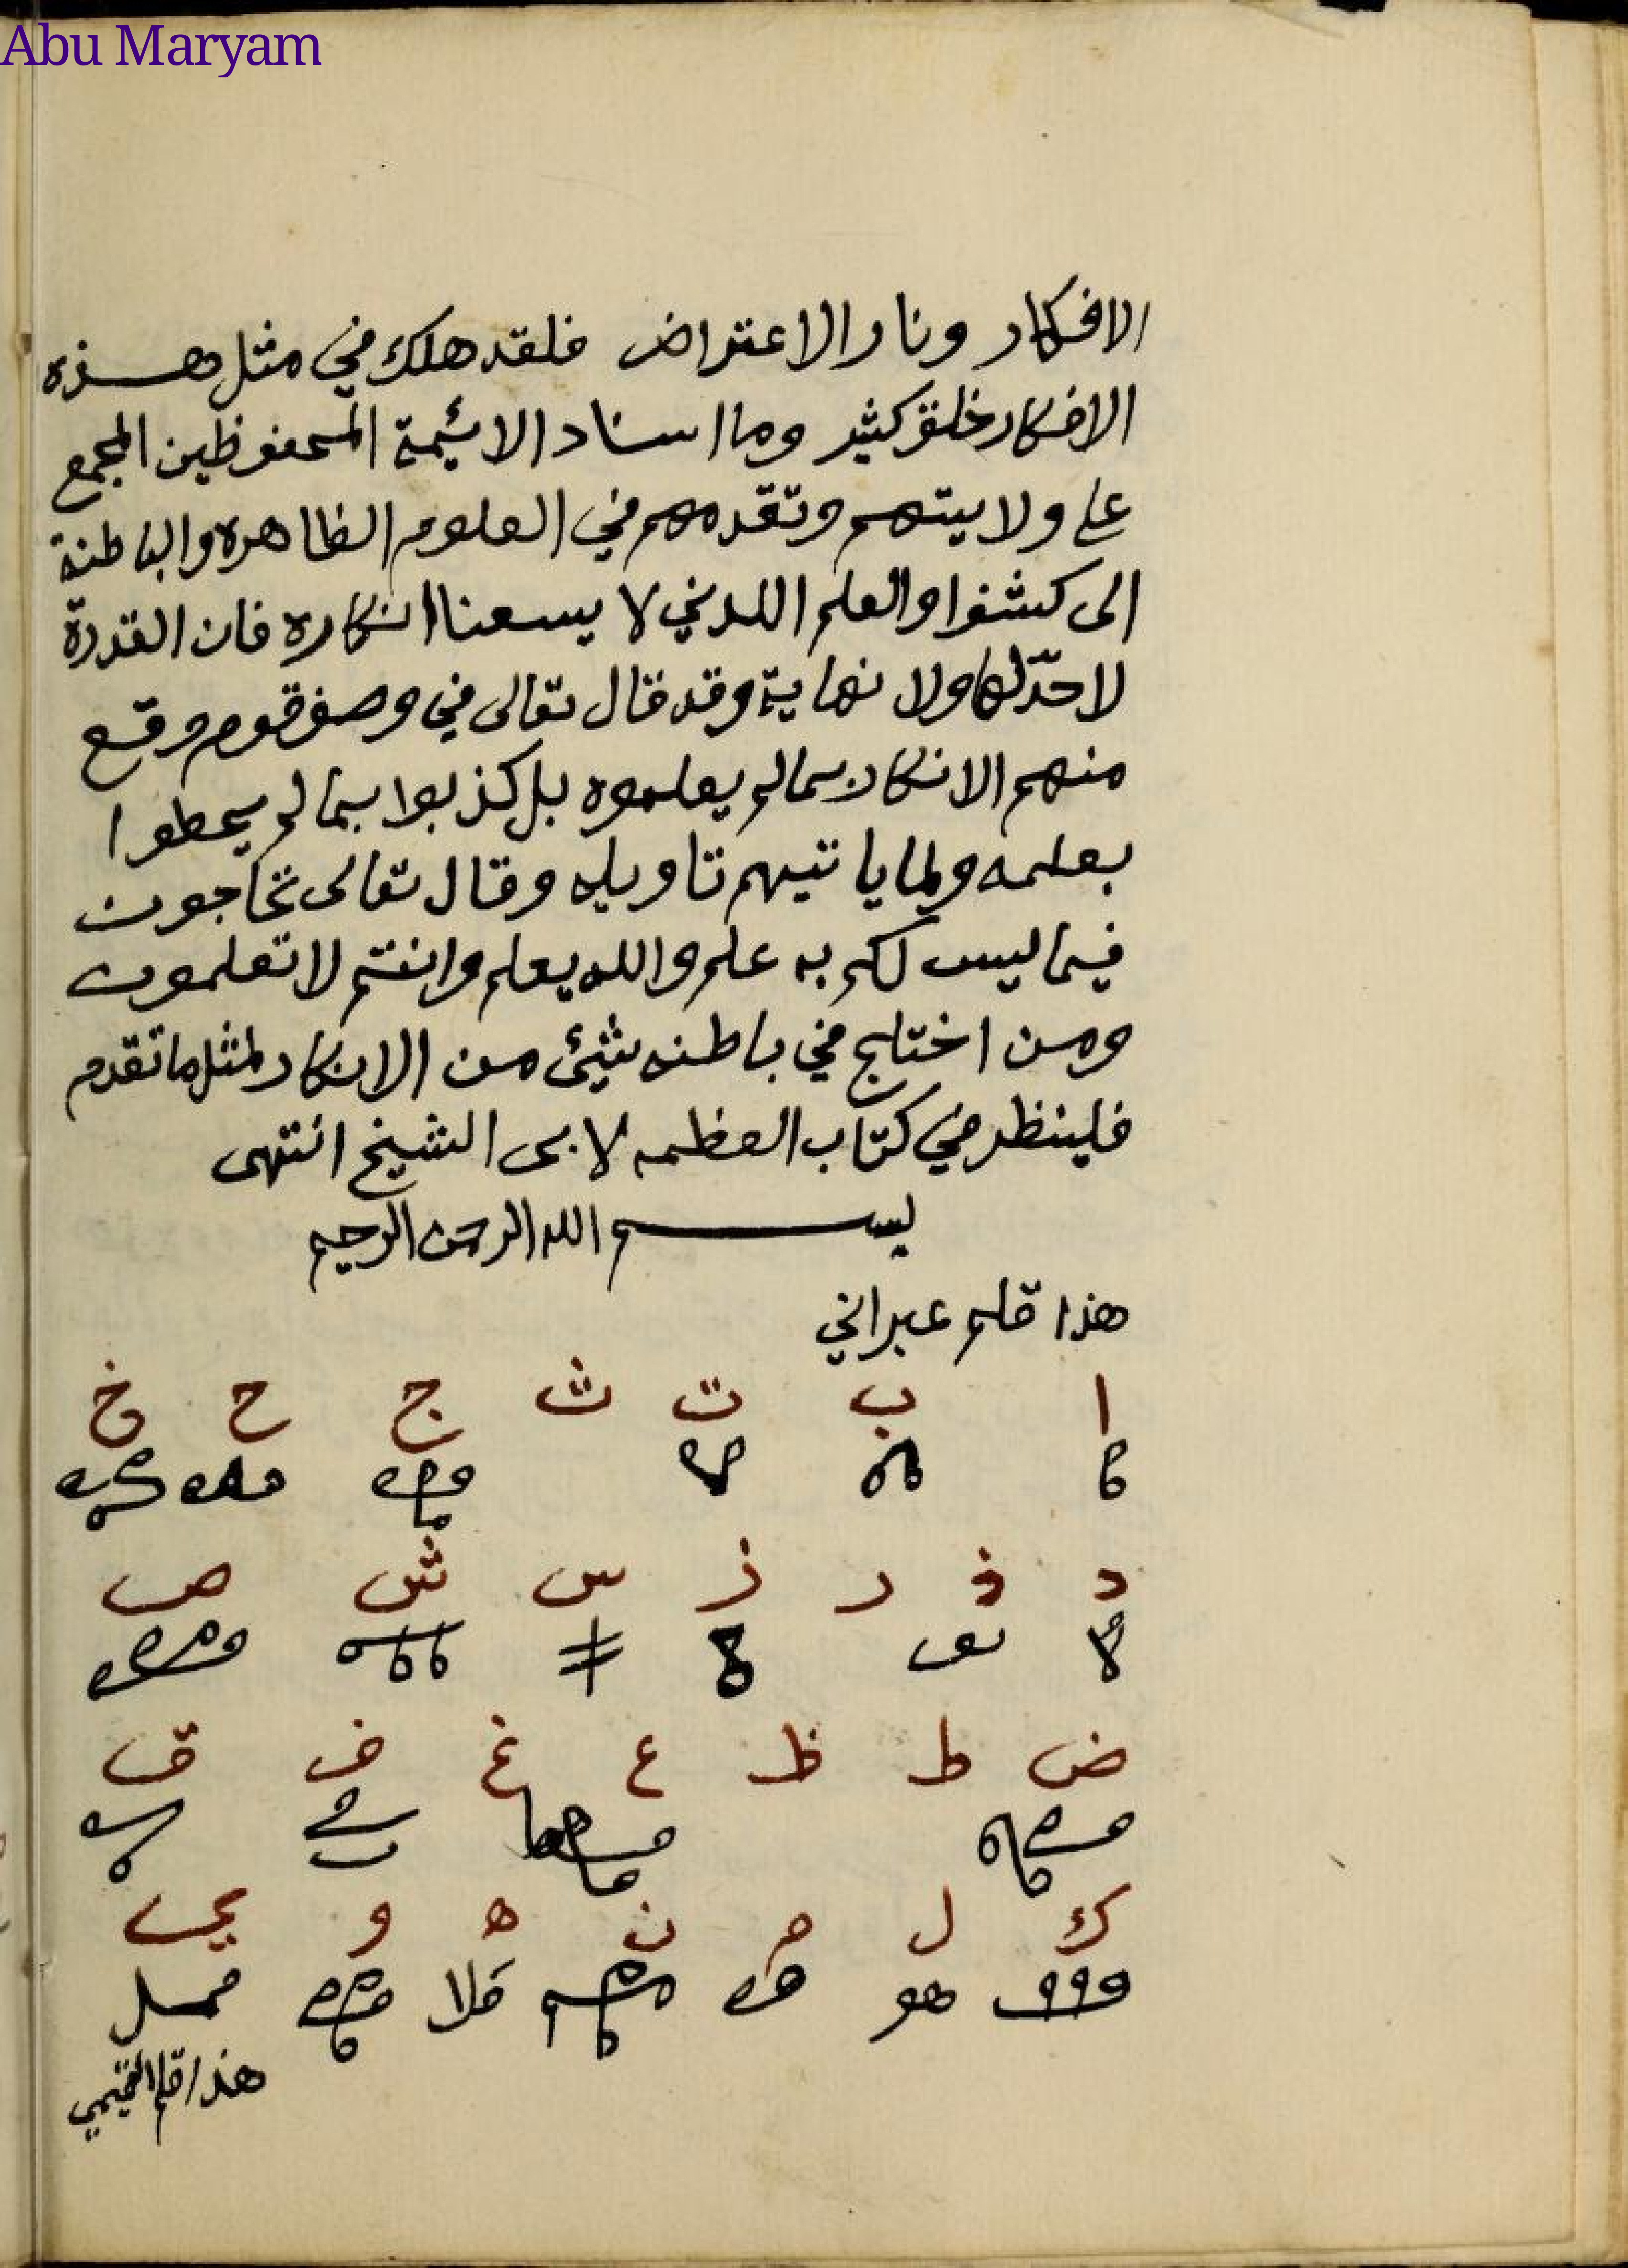 Abu Maryam
الافكار ونار الاعتراض فلقد هلك في مثل هذه
الافكار خلق كثير وما اسناد الائيمة المحفوظين المجمع
على ولايتهم وتقدمهم في العلوم الظاهره والباطنة
الى كشفوا والعلم اللدني لا يسعنا انكاره فان القدرة
لا حدّ لها ولا نهاية وقد قال تعالى في وصف قوم وقع
منهم الانكار بما لم يعلموه بل كذبوا بما لم يحطوا
بعلمه ولما ياتيهم تاويله وقال تعالى تحاجون
فيما ليس لكم به علم والله يعلم وانتم لا تعلمون
ومن اختلج في باطنه شيئ من الانكار لمثل ما تقدم
فلينظر في كتاب العظمه لابى الشيخ انتهى
بسم الله الرحمن الرحيم
هذا قلم عبراني
ا ب ت ث ج ح خ
د ذ ر ز س ش ص
ض ط ظ ع غ ف ق
ك ل م ن ه و ي
هذا قلم